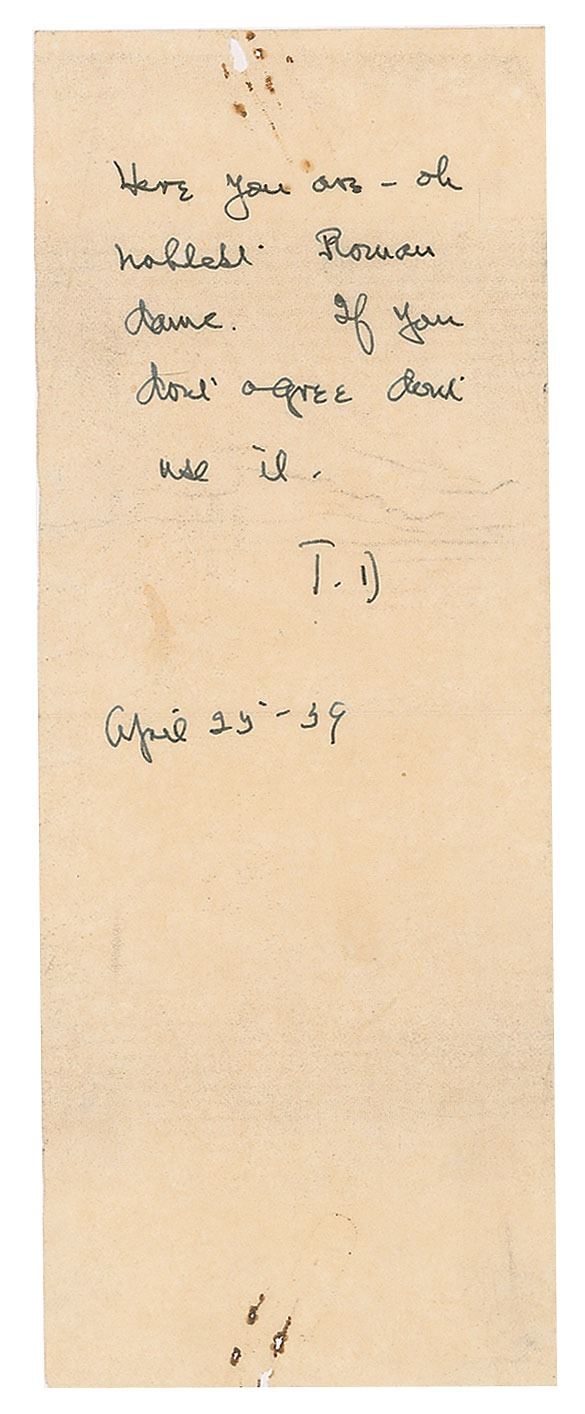 Here you are – oh
noblest Roman
dame. If you
dont agree dont
use it.
T. D
April 25 - 39